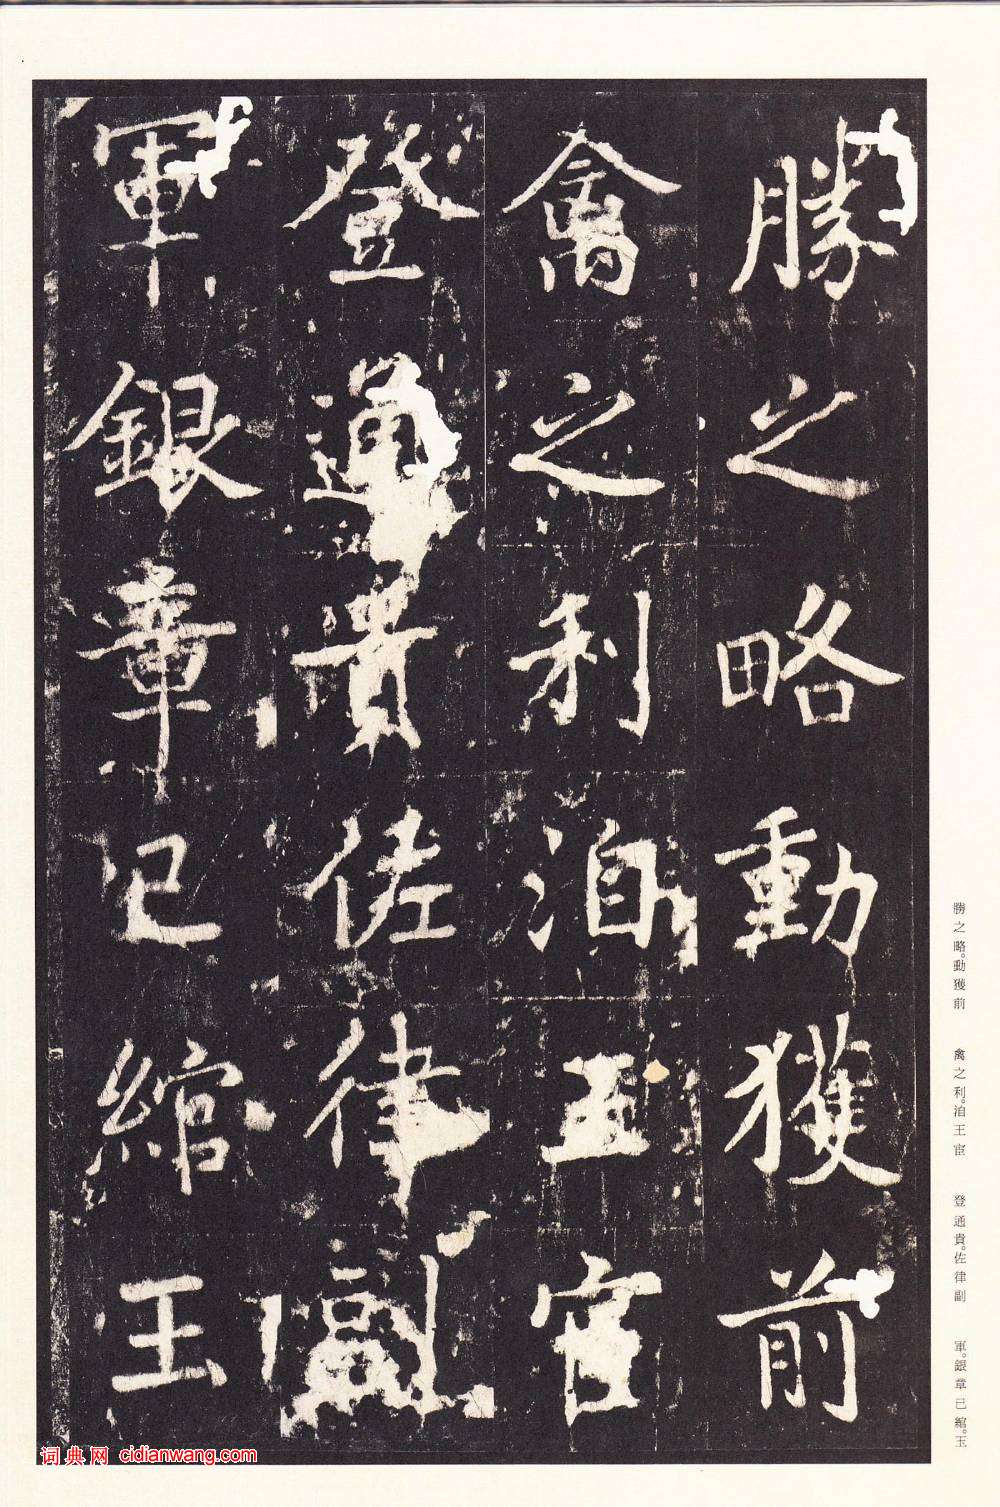 勝之略動獲前
禽之利洎王宦
登通貴佐律副
軍銀章已綰玉
勝之略。動獲前　禽之利。洎王宦　登通貴。佐律副　軍。銀章已綰。玉
词典网 cidianwang.com